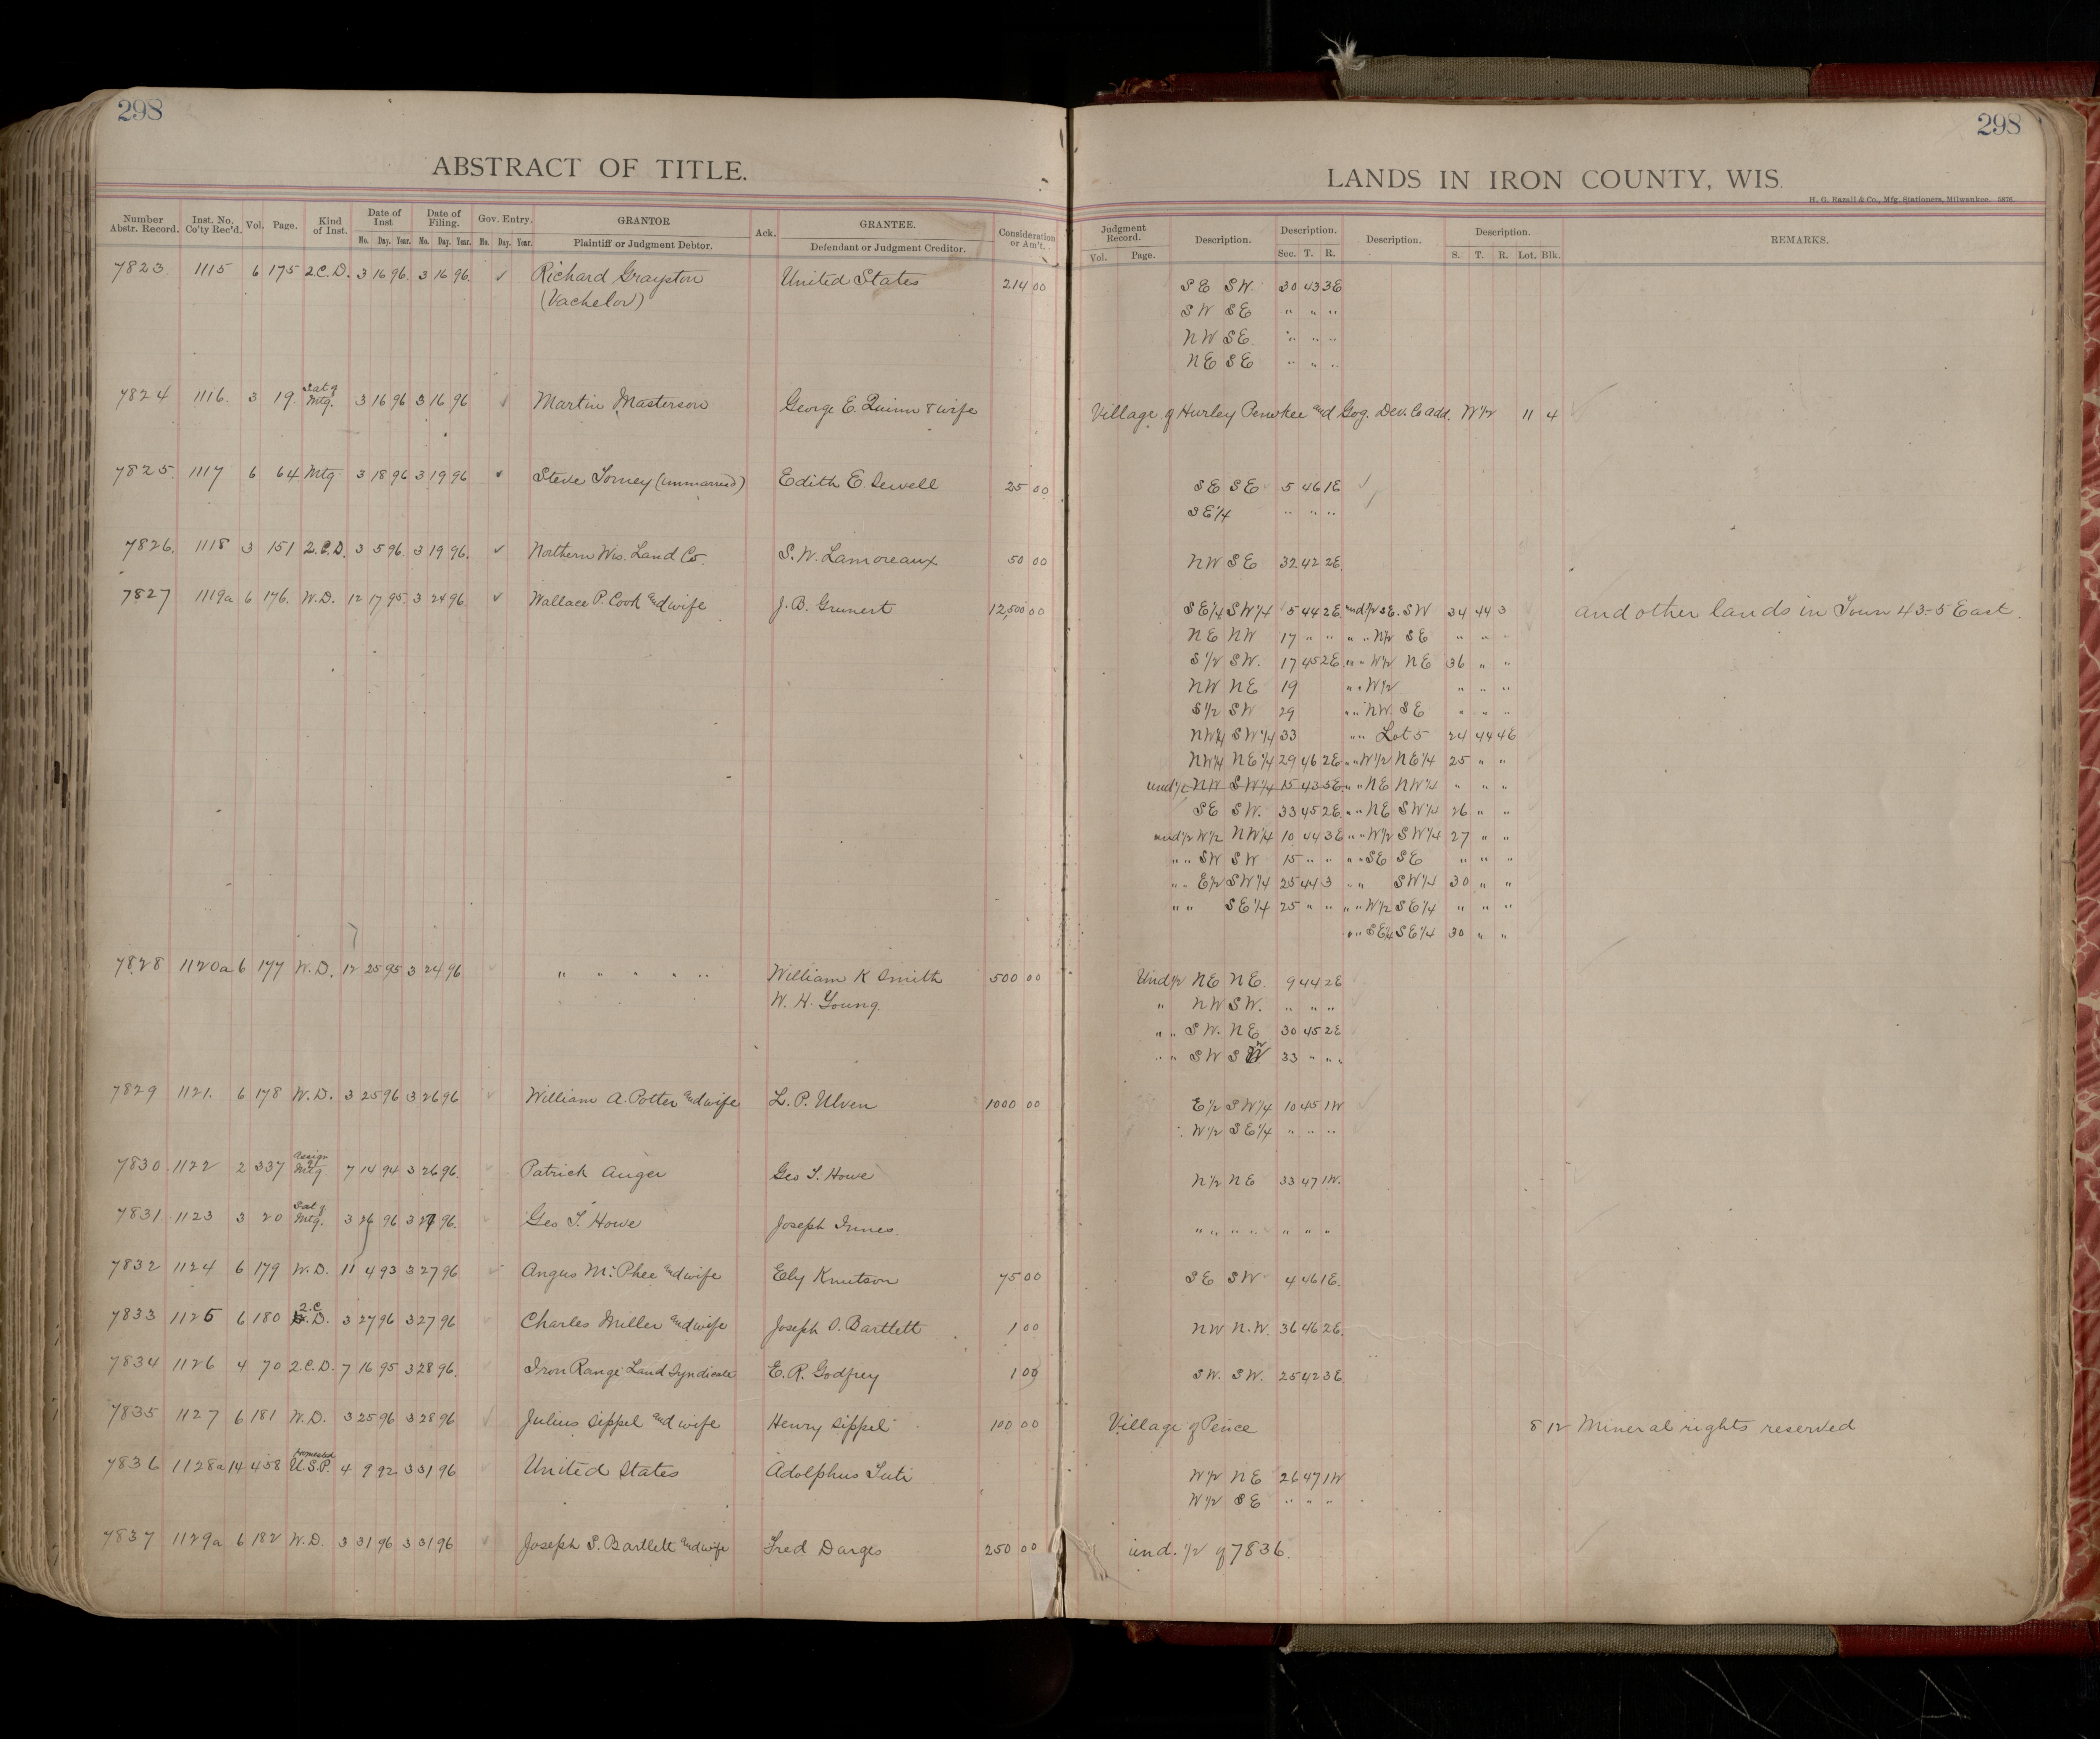 298
298
ABSTRACT OF TITLE.
LANDS IN IRON COUNTY, WIS.
H. G. Razall & Co., Mfg. Stationers, Milwaukee. 5876.
Number Abstr. Record. Inst. No. Co'ty Rec'd. Vol. Page. Kind of Inst. Date of Inst Mo. Day. Year. Date of Filing. Mo. Day. Year. Gov. Entry. Mo. Day. Year. GRANTOR Plaintiff or Judgment Debtor. Ack. GRANTEE. Defendant or Judgment Creditor. Consideration or Am't.
Judgment Record. Vol. Page. Description. Description. Sec. T. R. Description. Description. S. T. R. Lot. Blk. REMARKS.
7823 1115 6 175 2.C.D. 3 16 96. 3 16 96. ✓ Richard Grayston United States 214 00 SE SW. 30 43 3E
(Vachelor) SW SE " " "
NW SE. " " "
NE SE " " "
7824 1116. 3 19. Sat of Mtg. 3 16 96 3 16 96 ✓ Martin Masterson George E. Quinn & wife Village of Hurley Penokee and Gog. Dev. Co add. W 1/2 11 4
7825. 1117 6 64 Mtg 3 18 96 3 19 96 ✓ Steve Tomey (unmarried) Edith E. Sewell 25 00 SE SE 5 46 1E
SE 1/4 " " "
7826. 1118 3 151 2.C.D. 3 5 96 3 19 96. ✓ Northern Wis. Land Co. S. W. Lamoreaux 50 00 NW SE 32 42 2E.
7827 1119a 6 176. W.D. 12 17 95. 3 24 96. ✓ Wallace P. Cook and wife J. B. Grunert 12,500 00 SE 1/4 SW 1/4 5 44 2E. und 1/2 SE. SW 34 44 3 and other lands in Town 43-5 East.
NE NW 17 " " " " N 1/2 SE " " "
S 1/2 SW. 17 45 2E. " " W 1/2 NE 36 " "
NW NE 19 " " W 1/2 " " "
S 1/2 SW 29 " " NW. SE " " "
NW 1/4 SW 1/4 33 " " Lot 5 24 44 4E
NW 1/4 NE 1/4 29 46 2E " " W 1/2 NE 1/4 25 " "
und 1/2 NW SW 1/4 15 43 5E. " " NE NW 1/4 " " "
SE SW. 33 45 2E. " " NE SW 1/4 26 " "
und 1/2 W 1/2 NW 1/4 10 44 3E " " W 1/2 SW 1/4 27 " "
" " SW SW 15 " " " " SE SE " " "
" " E 1/2 SW 1/4 25 44 3 " " SW 1/4 30 " "
" " SE 1/4 25 " " " " W 1/2 SE 1/4 " " "
" " SE 1/4 SE 1/4 30 " "
7828 1120a 6 177 W.D. 12 25 95 3 24 96 ✓ " " " " " William K Smith 500 00 Und 1/2 NE NE. 9 44 2E
W. H. Young. " NW SW. " " "
" " SW. NE 30 45 2E
" " SW SW 33 " " "
7829 1121. 6 178 W.D. 3 25 96 3 26 96 ✓ William A. Potter and wife L. P. Ulven 1000 00 E 1/2 SW 1/4 10 45 1W
W 1/2 SE 1/4 " " "
7830 1122 2 337 Assign of Mtg 7 14 94 3 26 96. ✓ Patrick Anger Geo T. Howe N 1/2 NE 33 47 1W.
7831 1123 3 20 Sat of Mtg. 3 26 96 3 27 96. ✓ Geo T. Howe Joseph Innes. " " " " " " "
7832 1124 6 179 W.D. 11 4 93 3 27 96 ✓ Angus McPhee and wife Ely Knutson 75 00 SE SW 4 46 1E.
7833 1125 6 180 2.C.D. 3 27 96 3 27 96 ✓ Charles Miller and wife Joseph O. Bartlett 1 00 NW N.W. 36 46 2E.
7834 1126 4 70 2.C.D. 7 16 95 3 28 96. ✓ Iron Range Land Syndicate E. R. Godfrey 1 00 SW. SW. 25 42 3E
7835 1127 6 181 W.D. 3 25 96 3 28 96 ✓ Julius Sippel and wife Henry Sippel 100 00 Village of Pence 8 12 Mineral rights reserved
7836 1128a 14 458 Homestead U.S.P. 4 9 92 3 31 96 United States Adolphus Tuti W 1/2 NE 26 47 1W
W 1/2 SE " " "
7837 1129a 6 182 W.D. 3 31 96 3 31 96 ✓ Joseph S. Bartlett and wife Fred Darges 250 00 und. 1/2 of 7836.